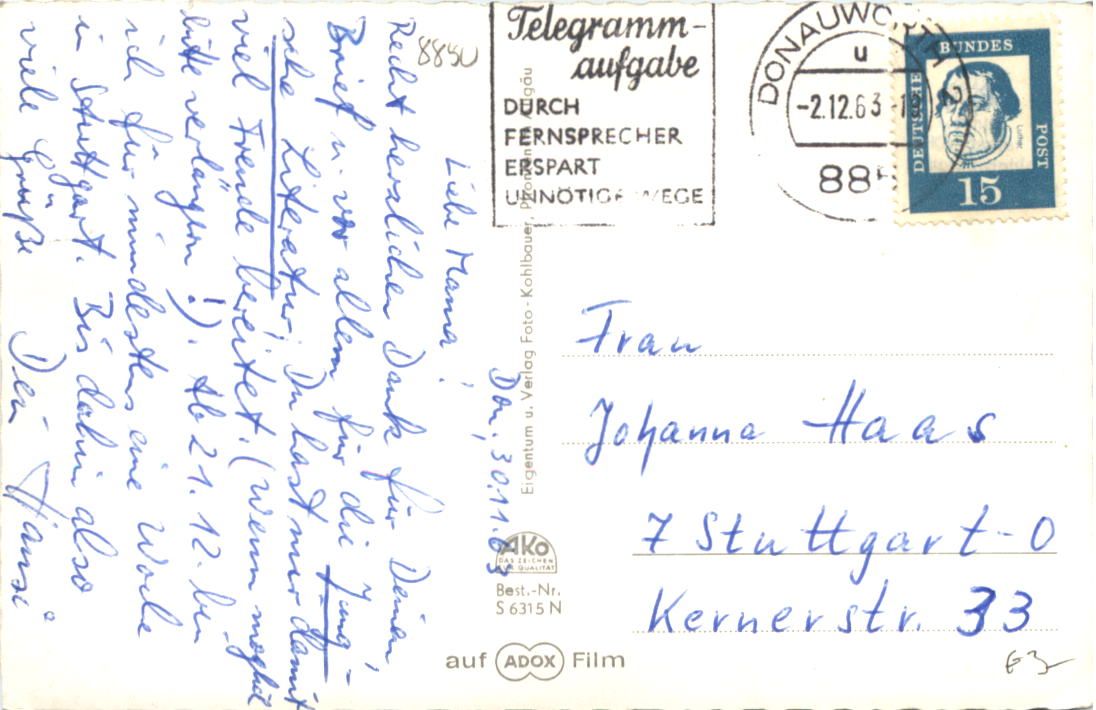 Don, 30.11.63
Liebe Mama!
Recht herzlichen Dank für Deinen
Brief u. vor allem für die Jung-
sche Literatur; Du hast mir damit
viel Freude bereitet. (Wenn möglich
bitte verlängern!). Ab 21.12. bin
ich für mindestens eine Woche
in Stuttgart. Bis dahin also
viele Grüße Dein Hansi
8850
Telegramm-
aufgabe
DURCH
FERNSPRECHER
ERSPART
UNNÖTIGE WEGE
DONAUWÖRTH 2
u
-2.12.63-19
885
DEUTSCHE
BUNDES
POST
Luther
15
Eigentum u. Verlag Foto-Kohlbauer, Pfronten/Allgäu
Frau
Johanna Haas
7 Stuttgart-O
Kernerstr. 33
AKO
DAS ZEICHEN
FÜR QUALITÄT
Best.-Nr.
S 6315 N
auf ADOX Film
63